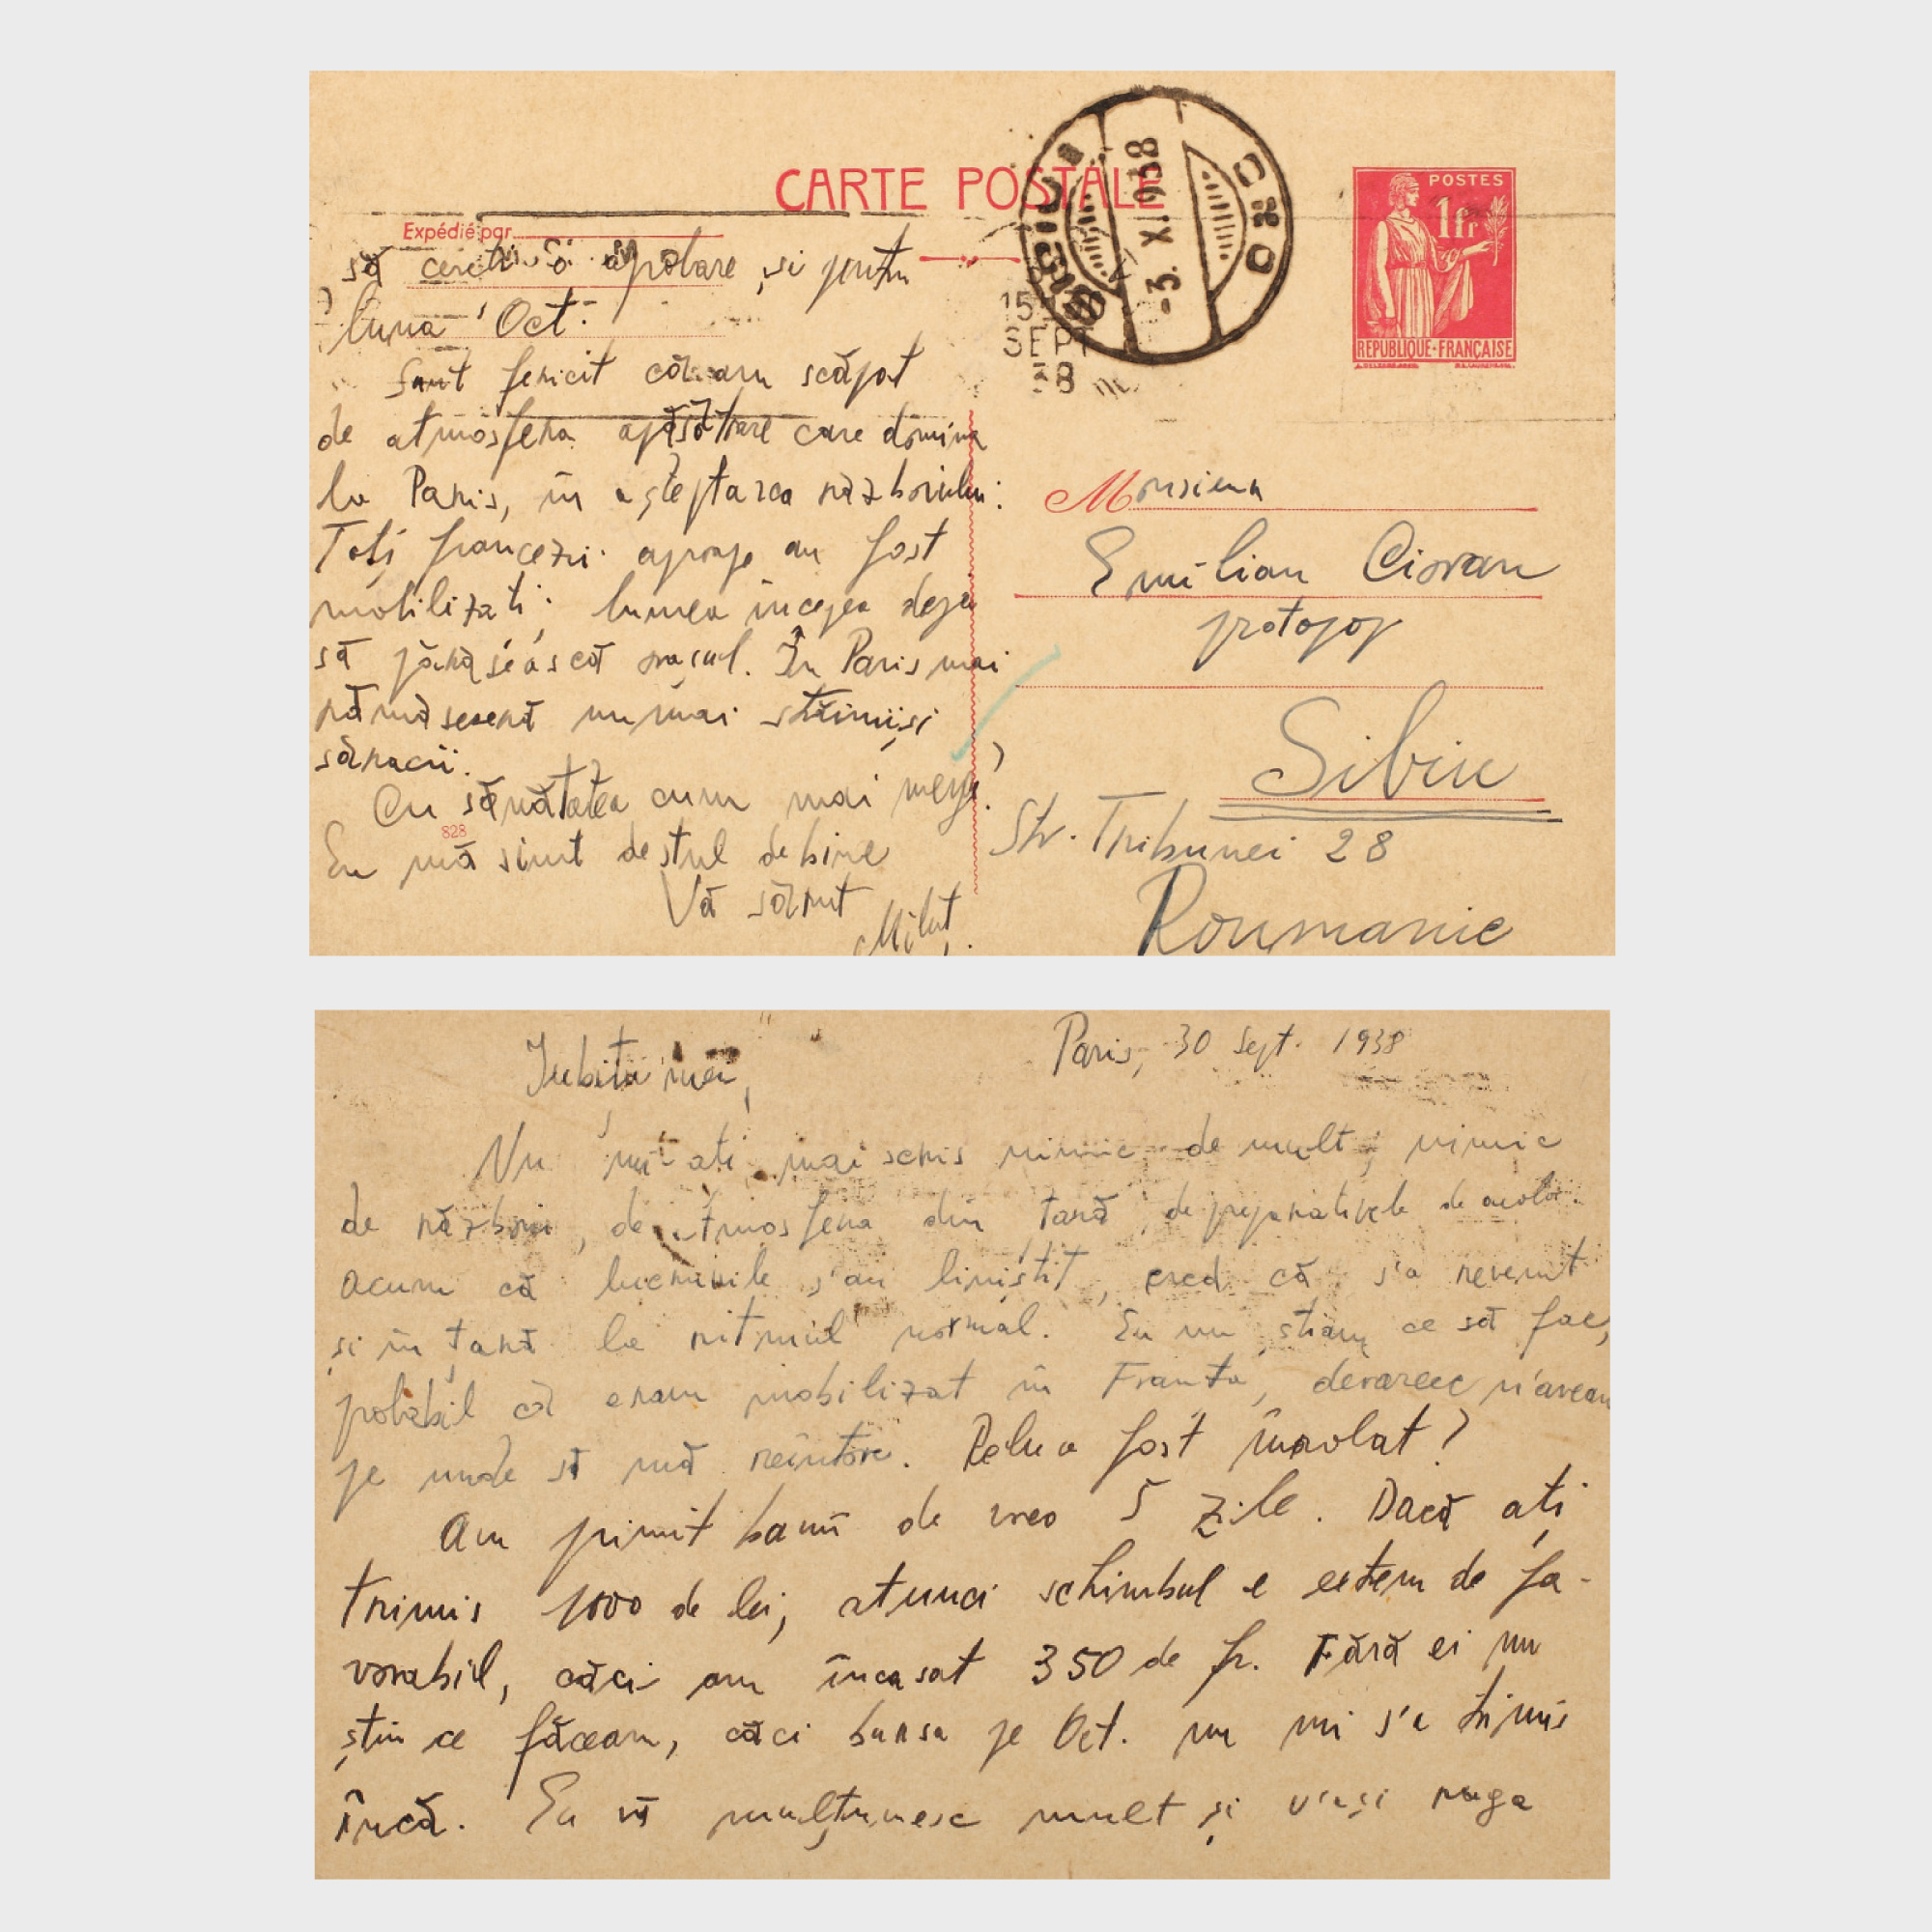 CARTE POSTALE
Expédié par
să cereți o aprobare și pentru
luna Oct.
Sunt fericit că am scăpat
de atmosfera apăsătoare care domina
la Paris, în așteptarea războiului.
Toți francezii aproape au fost
mobilizați; lumea începea deja
să părăsească orașul. În Paris mai
rămăseseră numai străinii și
săracii.
Cu sănătatea cum mai merge?
828
Eu mă simt destul de bine
Vă sărut
Miluț.
SIBIU
-3. X. 938
15
SEPT
38
POSTES
1fr
REPUBLIQUE·FRANÇAISE
Monsieur
Emilian Cioran
protopop
Sibiu
Str. Tribunei 28
Roumanie
Paris, 30 Sept. 1938
Iubiții mei,
Nu mi-ați mai scris nimic de mult; nimic
de război, de atmosfera din țară, de preparativele de acolo.
Acum că lucrurile s'au liniștit, cred că s'a revenit
și în țară la ritmul normal. Eu nu știam ce să fac,
probabil că eram mobilizat în Franța, deoarece n'aveam
pe unde să mă reîntorc. Relu a fost înrolat?
Am primit banii de vreo 5 zile. Dacă ați
trimis 1000 de lei, atunci schimbul e extrem de fa-
vorabil, căci am încasat 350 de fr. Fără ei nu
știu ce făceam, căci bursa pe Oct. nu mi s'a trimis
încă. Eu vă mulțumesc mult și v'ași ruga